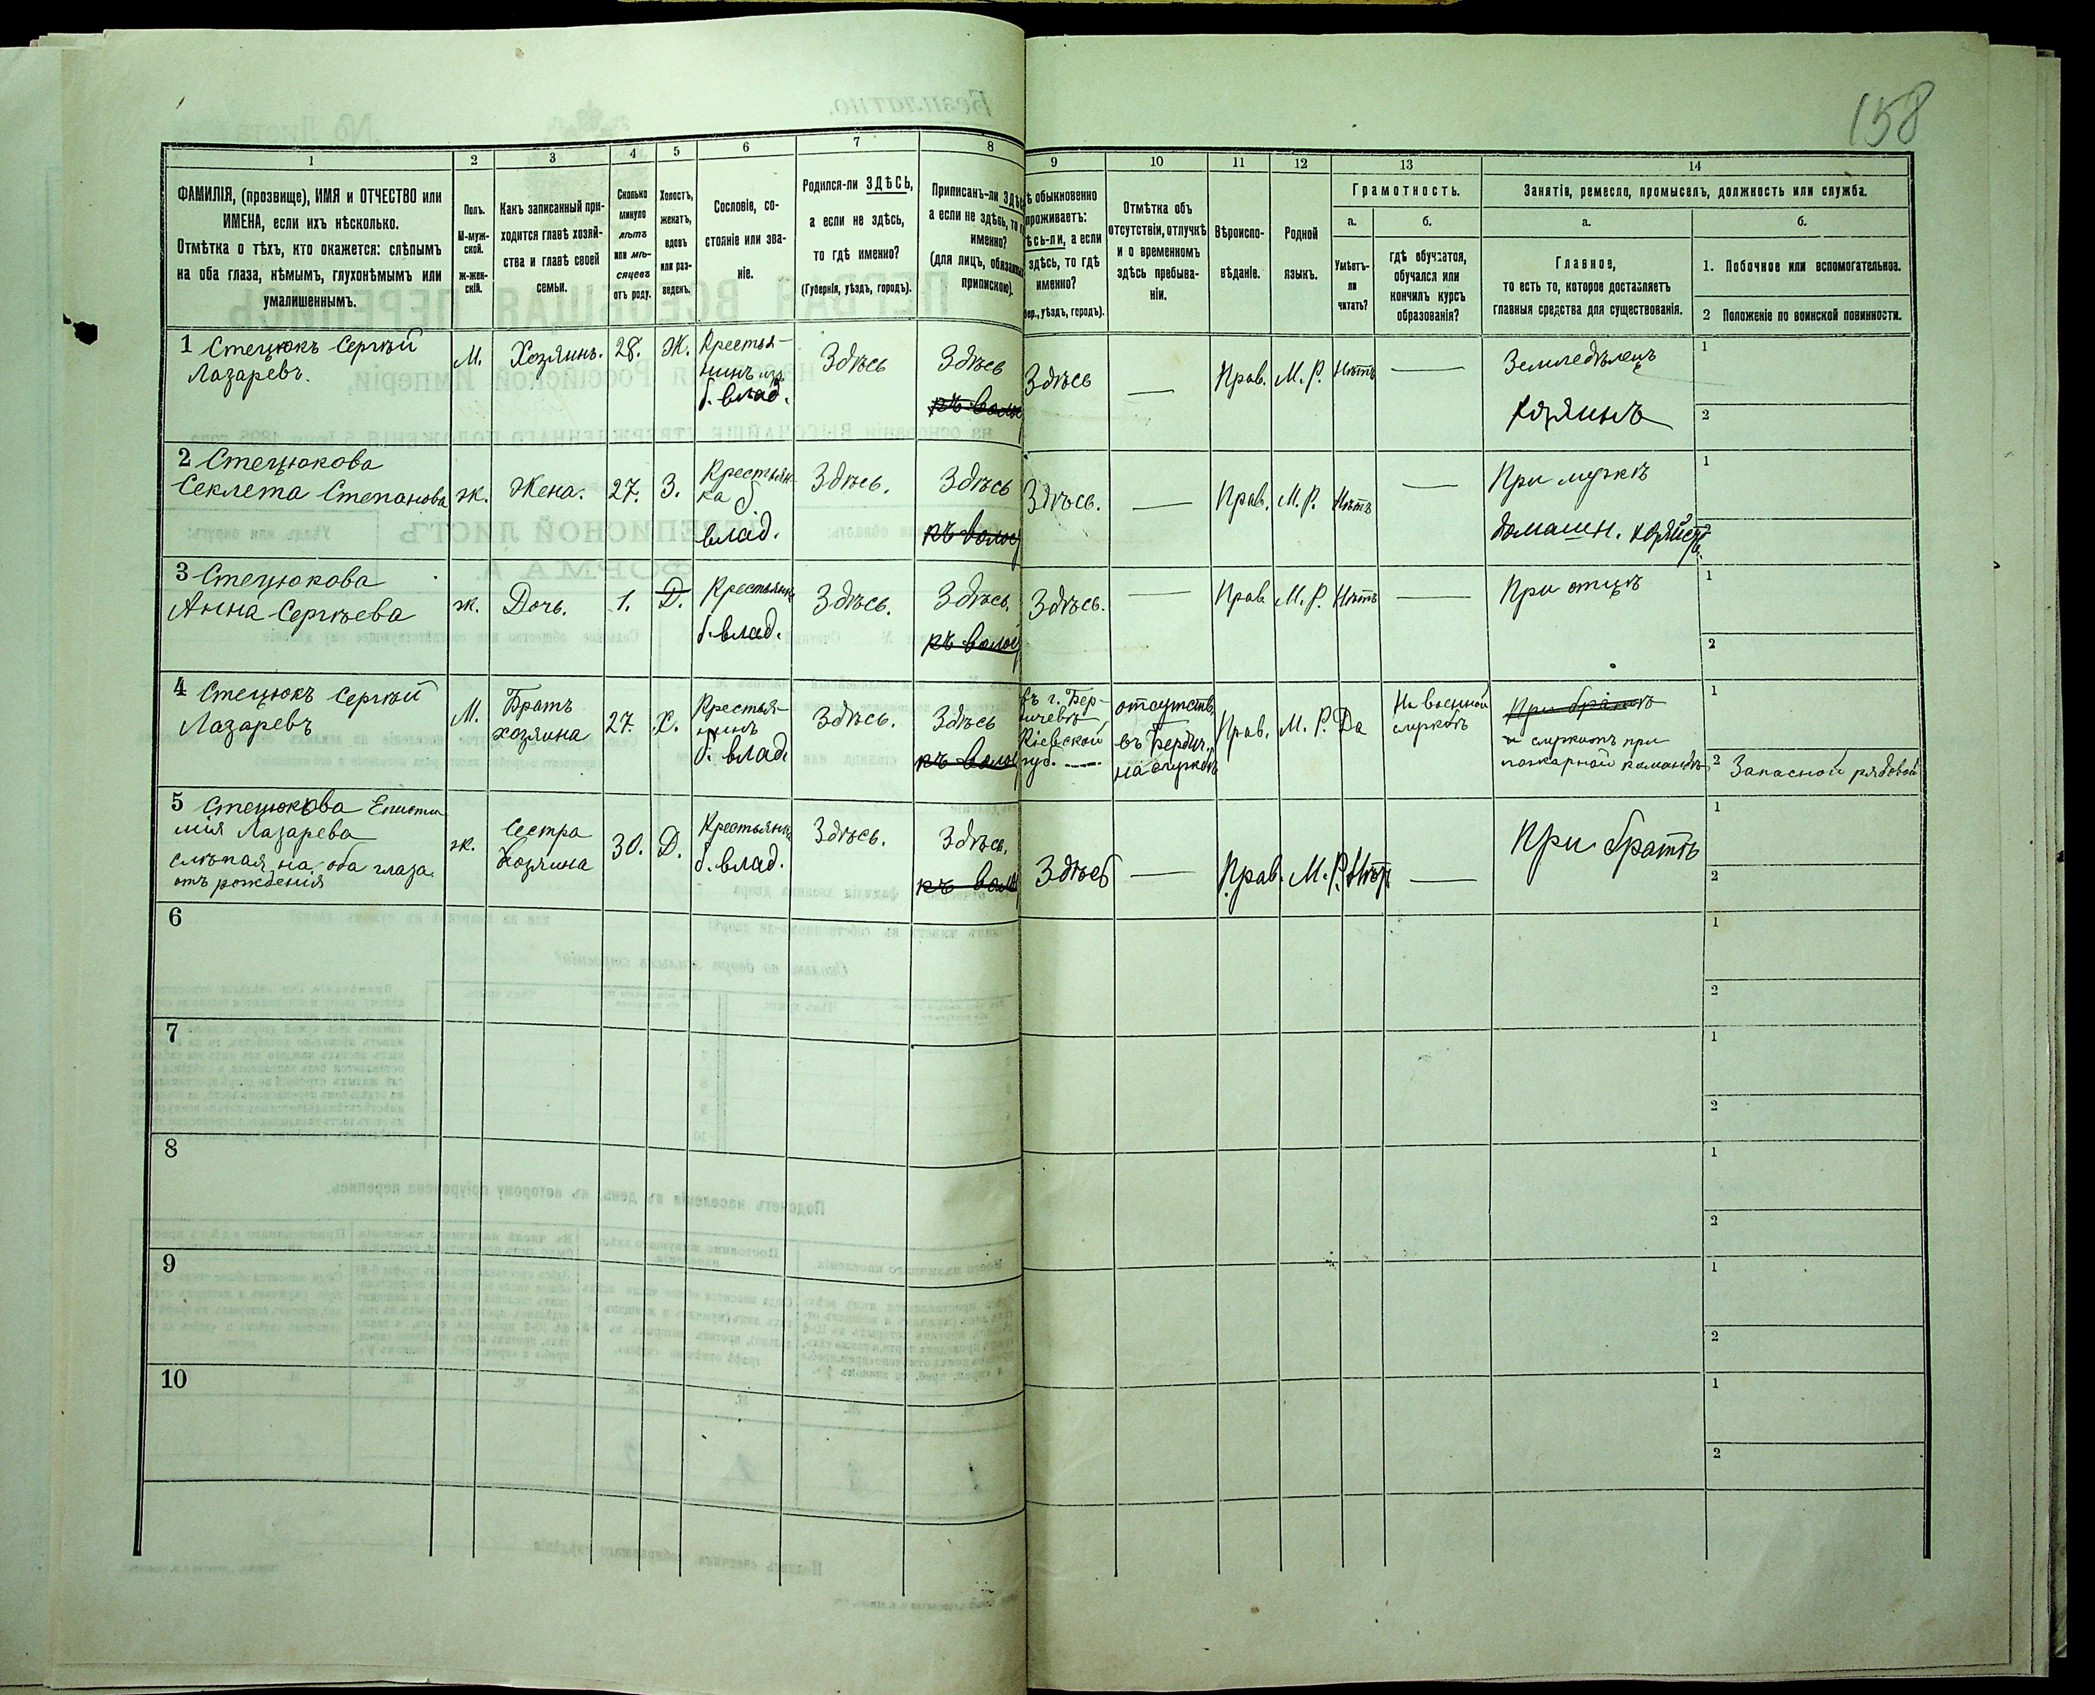 158
1
2
3
4
5
6
7
8
9
10
11
12
13
14
ФАМИЛІЯ, (прозвище), ИМЯ и ОТЧЕСТВО или
ИМЕНА, если ихъ нѣсколько.
Отмѣтка о тѣхъ, кто окажется: слѣпымъ
на оба глаза, нѣмымъ, глухонѣмымъ или
умалишеннымъ.
Полъ.
М-муж-
ской.
ж-жен-
скій.
Какъ записанный при-
ходится главѣ хозяй-
ства и главѣ своей
семьи.
Сколько
минуло
лѣтъ
или мѣ-
сяцевъ
отъ роду.
Холостъ,
женатъ,
вдовъ
или раз-
веденъ.
Сословіе, со-
стояніе или зва-
ніе.
Родился-ли ЗДѢСЬ,
а если не здѣсь,
то гдѣ именно?
(Губернія, уѣздъ, городъ).
Приписанъ-ли
а если не здѣсь, то
именно?
(для лицъ,
припискою).
обыкновенно
проживаетъ:
а если
здѣсь, то гдѣ
именно?
уѣздъ, городъ).
Отмѣтка объ
отсутствіи, отлучкѣ
и о временномъ
здѣсь пребыва-
ніи.
Вѣроиспо-
вѣданіе.
Родной
языкъ.
Грамотность.
а.
б.
Умѣетъ-
ли
читать?
гдѣ обучается,
обучался или
кончилъ курсъ
образованія?
Занятіе, ремесло, промыселъ, должность или служба.
а.
б.
Главное,
то есть то, которое доставляетъ
главныя средства для существованія.
1. Побочное или вспомогательное.
2 Положеніе по воинской повинности.
1 Стецюкъ Сергѣй
Лазаревъ.
М.
Хозяинъ.
28.
Ж.
Крестья-
нинъ изъ
б. влад.
Здѣсь
Здѣсь
Здѣсь
—
Прав.
М. Р.
Нѣтъ
—
Земледѣлецъ
хозяинъ
1
2
2 Стецюкова
Секлета Степанова
ж.
Жена.
27.
З.
Крестьян-
ка б.
влад.
Здѣсь.
Здѣсь
Здѣсь.
—
Прав.
М. Р.
Нѣтъ
—
При мужѣ
домашн.
1
3 Стецюкова
Анна Сергѣева
ж.
Дочь.
1.
Д.
Крестьянка
б. влад.
Здѣсь.
Здѣсь.
Здѣсь.
—
Прав
М. Р.
Нѣтъ
—
При отцѣ
1
2
4 Стецюкъ Сергѣй
Лазаревъ
М.
Братъ
хозяина
27.
Х.
Крестья-
нинъ
б. влад.
Здѣсь.
Здѣсь
въ г. Бер-
дичевѣ
Кіевской
губ.
отсутств.
въ Бердич.
на службѣ
Прав.
М. Р.
Да
На военной
службѣ
При братѣ
и служитъ при
пожарной командѣ
1
2 Запасной рядовой
5 Стецюкова Еписти-
мія Лазарева
слѣпая на оба глаза
отъ рожденія
ж.
Сестра
хозяина
30.
Д.
Крестьянка
б. влад.
Здѣсь.
Здѣсь.
Здѣсь
—
Прав.
М. Р.
Нѣтъ
—
При братѣ
1
2
6
1
2
7
1
2
8
1
2
9
1
2
10
1
2